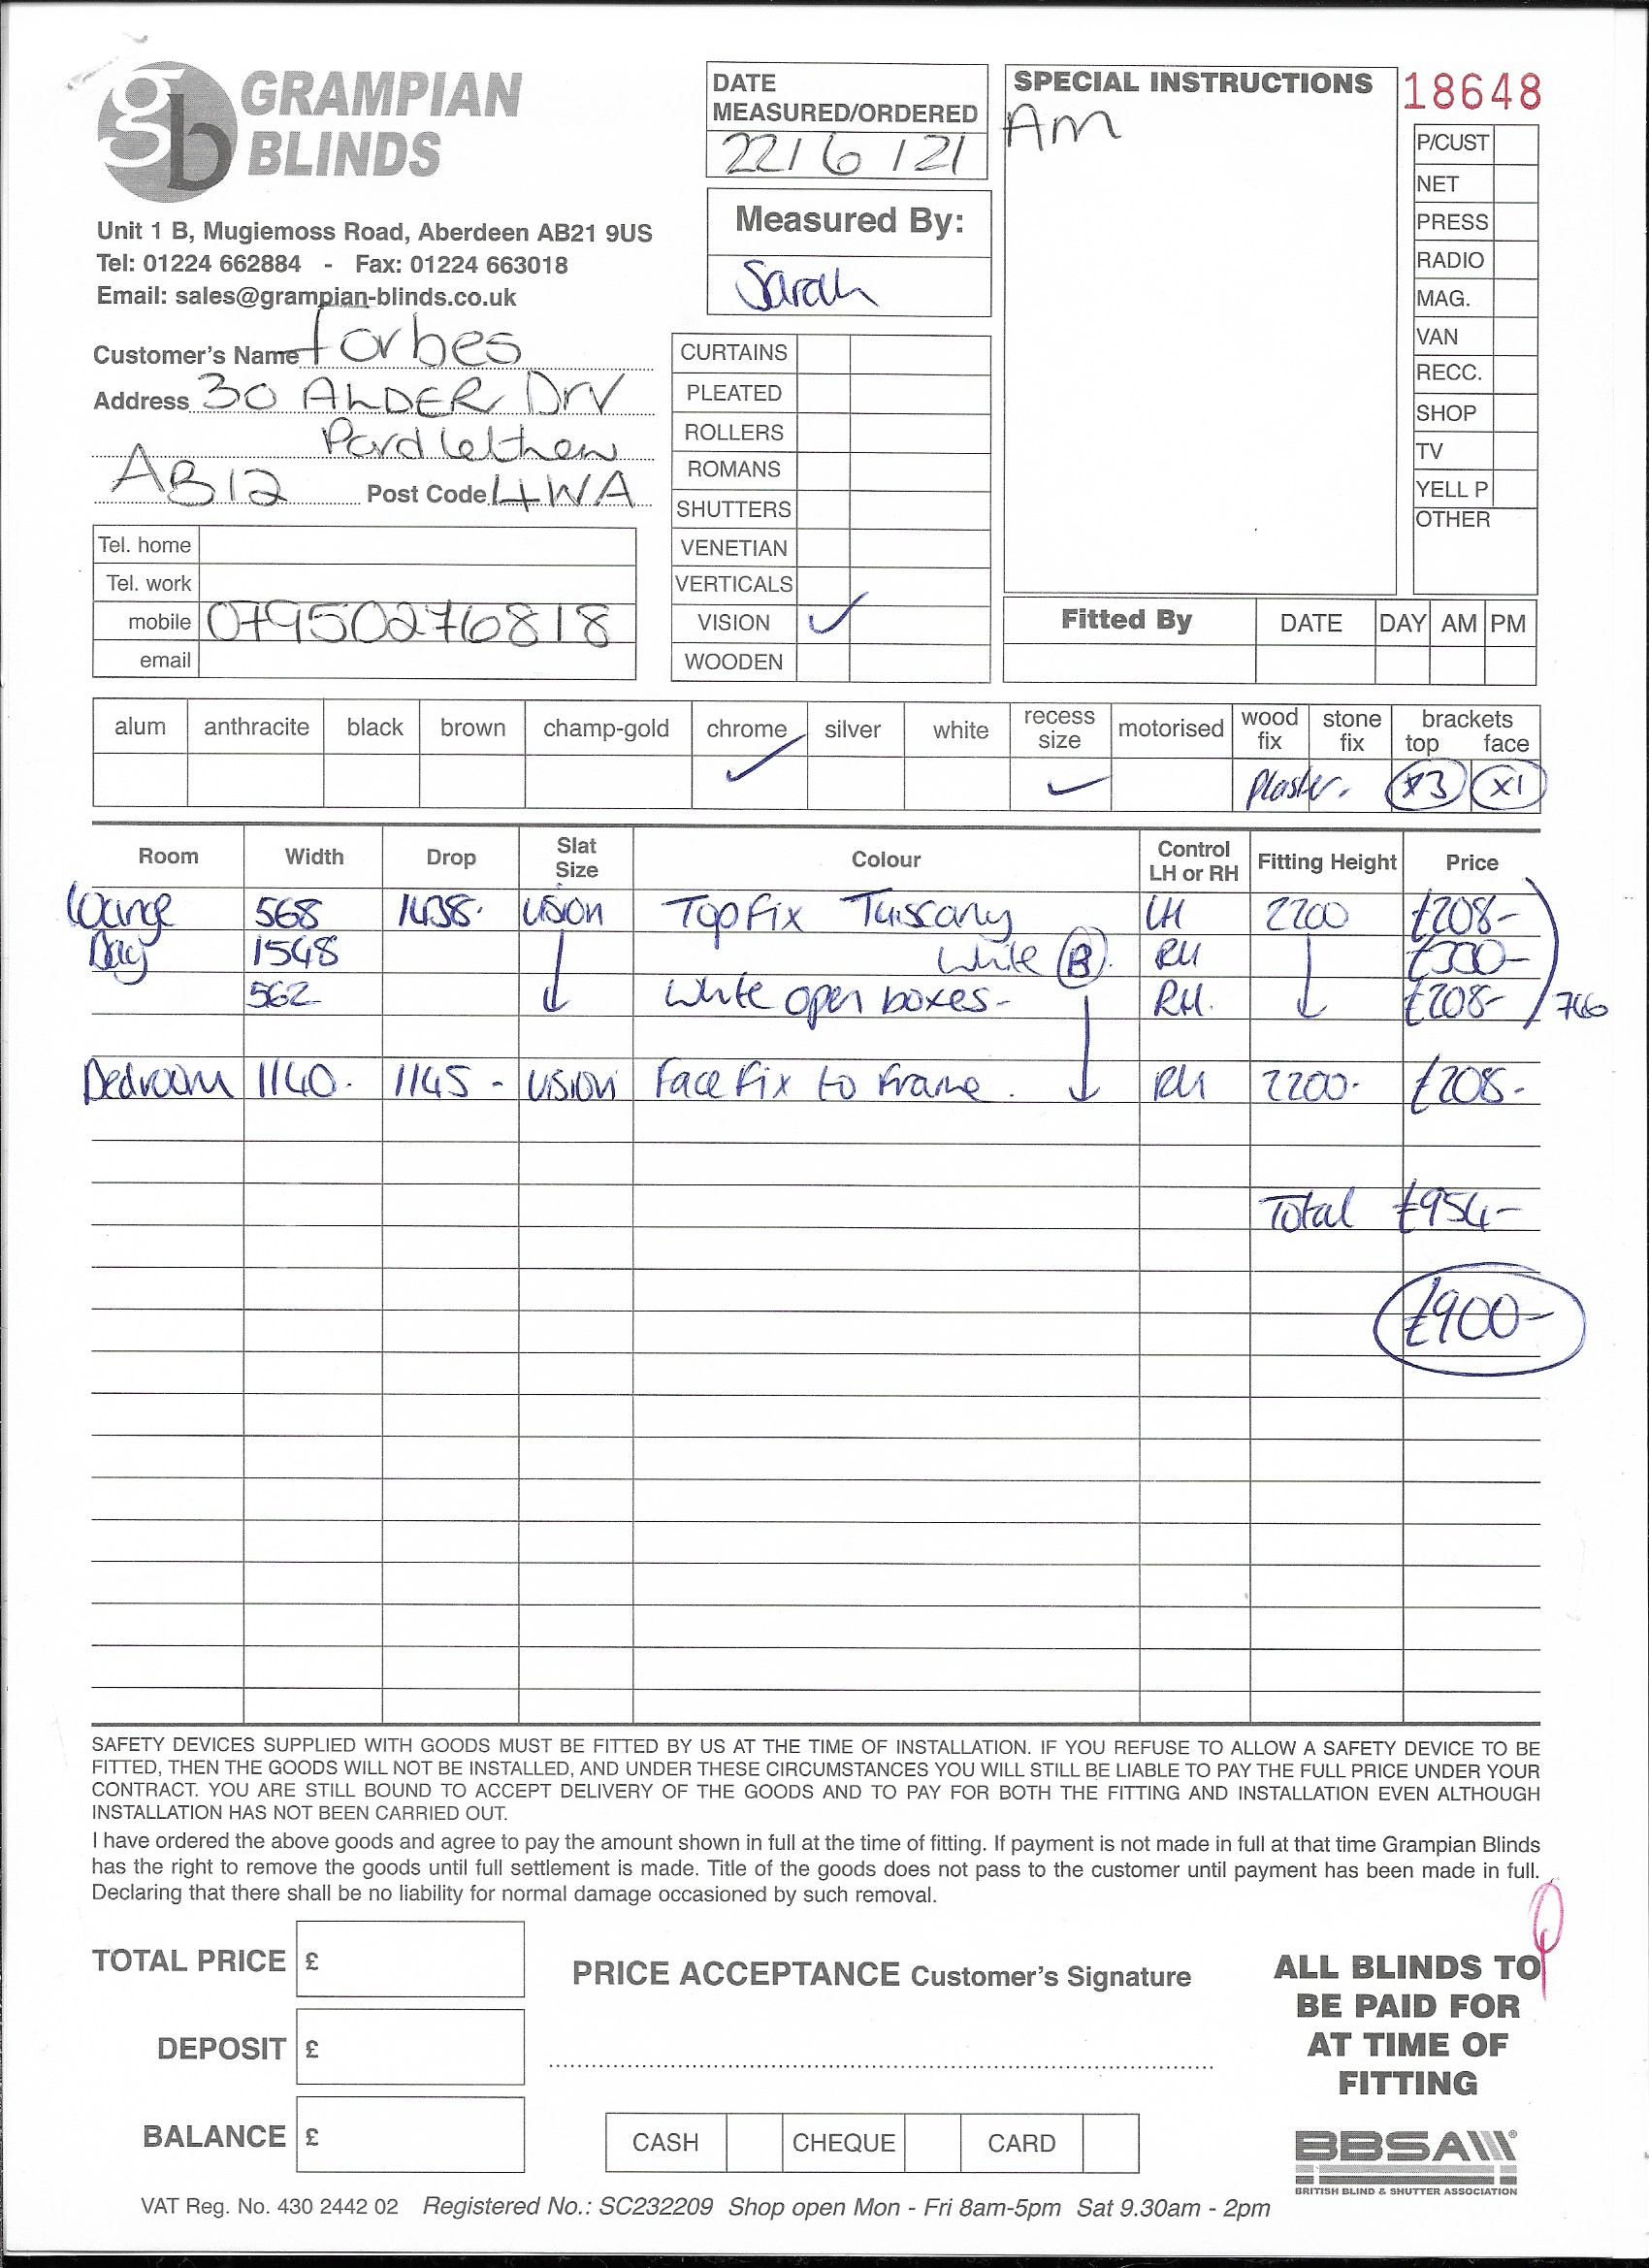 gb GRAMPIAN
BLINDS
Unit 1 B, Mugiemoss Road, Aberdeen AB21 9US
Tel: 01224 662884 - Fax: 01224 663018
Email: sales@grampian-blinds.co.uk
Customer's Name Forbes
Address 30 ALDER Drv
Pordlethen
AB12 Post Code 4WA
Tel. home
Tel. work
mobile 07950276818
email
DATE
MEASURED/ORDERED
22/6/21
Measured By:
Sarah
CURTAINS
PLEATED
ROLLERS
ROMANS
SHUTTERS
VENETIAN
VERTICALS
VISION ✓
WOODEN
SPECIAL INSTRUCTIONS
Am
18648
P/CUST
NET
PRESS
RADIO
MAG.
VAN
RECC.
SHOP
TV
YELL P
OTHER
Fitted By DATE DAY AM PM
alum anthracite black brown champ-gold chrome silver white recess size motorised wood fix stone fix brackets top face
✓ ✓ Plaster. x3 x1
Room Width Drop Slat Size Colour Control LH or RH Fitting Height Price
Lounge 568 1438. vision Top Fix Tuscany LH 2200 £208-
Bay 1548 White (B). RH £330-
562 White open boxes- RH. £208- 746
Bedroom 1140. 1145 - vision Face Fix to Frame. RH 2200. £208-
Total £954-
£900-
SAFETY DEVICES SUPPLIED WITH GOODS MUST BE FITTED BY US AT THE TIME OF INSTALLATION. IF YOU REFUSE TO ALLOW A SAFETY DEVICE TO BE
FITTED, THEN THE GOODS WILL NOT BE INSTALLED, AND UNDER THESE CIRCUMSTANCES YOU WILL STILL BE LIABLE TO PAY THE FULL PRICE UNDER YOUR
CONTRACT. YOU ARE STILL BOUND TO ACCEPT DELIVERY OF THE GOODS AND TO PAY FOR BOTH THE FITTING AND INSTALLATION EVEN ALTHOUGH
INSTALLATION HAS NOT BEEN CARRIED OUT.
I have ordered the above goods and agree to pay the amount shown in full at the time of fitting. If payment is not made in full at that time Grampian Blinds
has the right to remove the goods until full settlement is made. Title of the goods does not pass to the customer until payment has been made in full.
Declaring that there shall be no liability for normal damage occasioned by such removal.
TOTAL PRICE £
DEPOSIT £
BALANCE £
PRICE ACCEPTANCE Customer's Signature
CASH CHEQUE CARD
ALL BLINDS TO
BE PAID FOR
AT TIME OF
FITTING
BBSA
BRITISH BLIND & SHUTTER ASSOCIATION
VAT Reg. No. 430 2442 02 Registered No.: SC232209 Shop open Mon - Fri 8am-5pm Sat 9.30am - 2pm